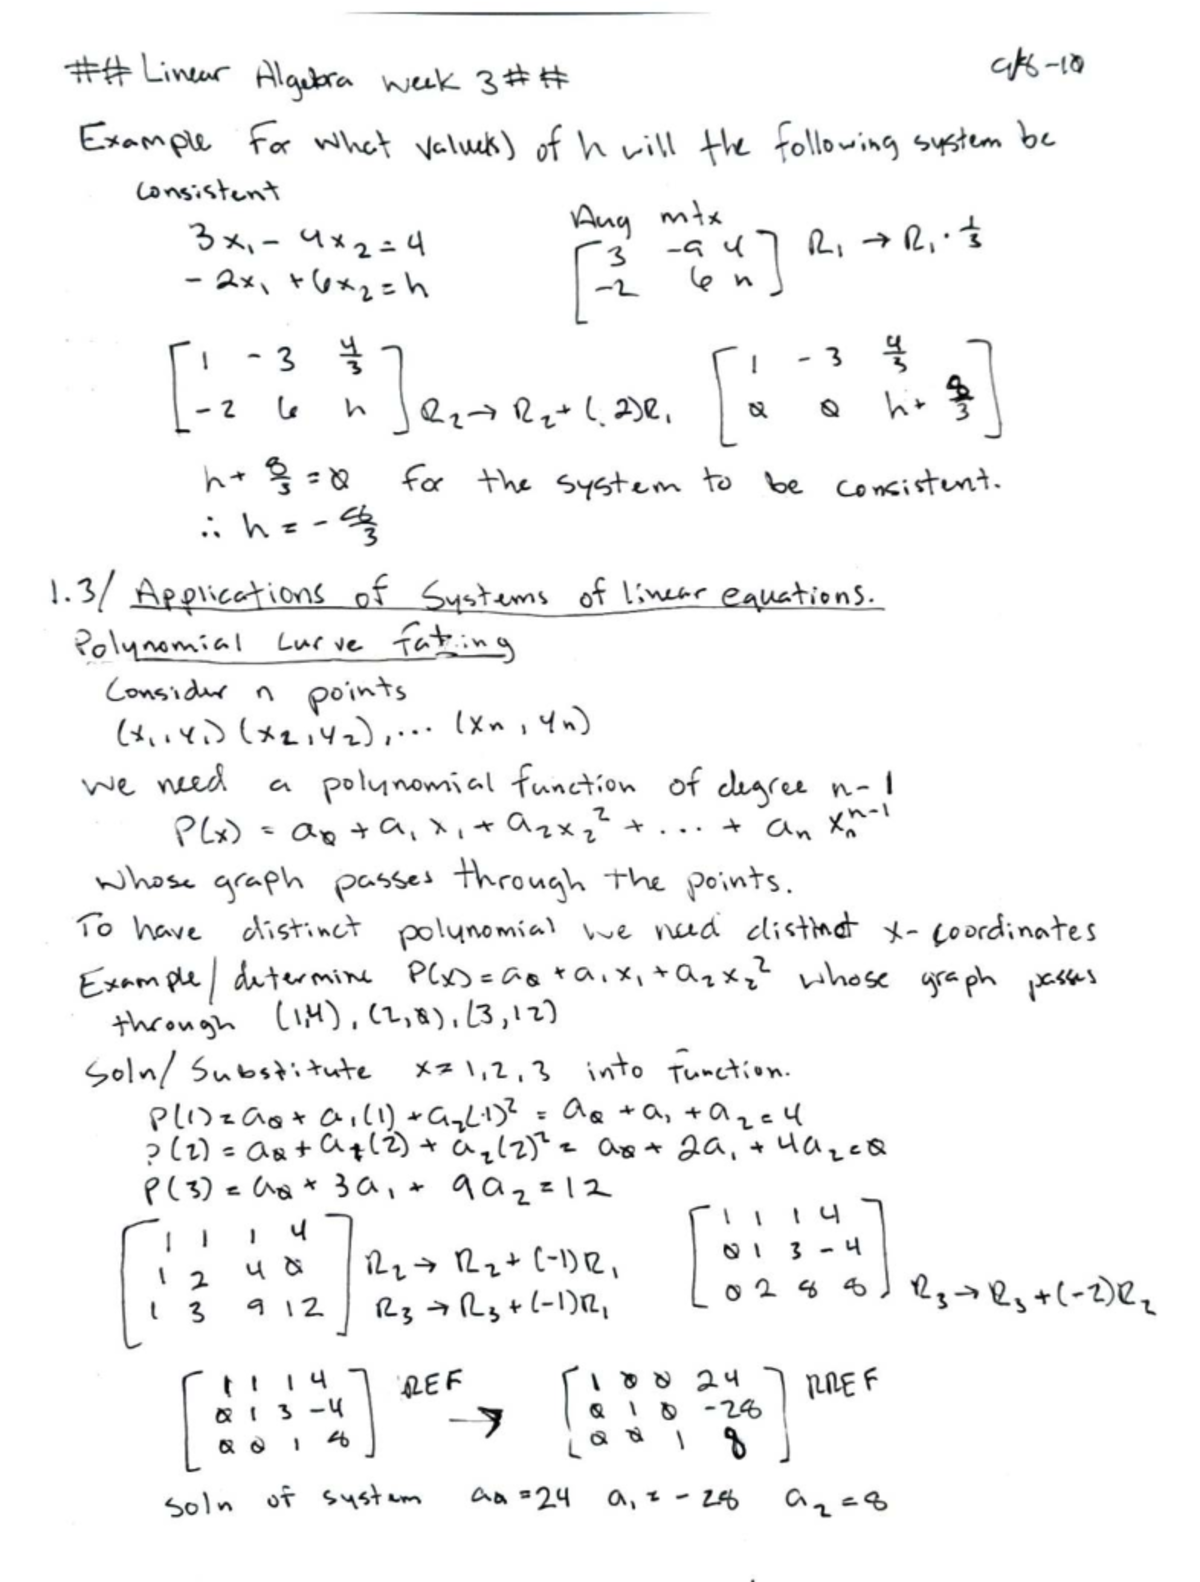 ## Linear Algebra week 3 ##
Example For what value(s) of h will the following system be
consistent
3x₁ - 4x₂ = 4
- 2x₁ + 6x₂ = h
Aug mtx
[3 -9 4
-2 6 h] R₁ → R₁ · 1/3
[1 -3 4/3
-2 6 h] R₂ → R₂ + (.2)R₁
[1 -3 4/3
0 0 h + 8/3]
h + 8/3 = 0 for the system to be consistent.
∴ h = - 8/3
1.3/ Applications of Systems of linear equations.
Polynomial Curve Fitting
Consider n points
(x₁, y₁) (x₂, y₂), ... (xn, yn)
we need a polynomial function of degree n-1
P(x) = a₀ + a₁x₁ + a₂x₂² + ... + an xnⁿ⁻¹
whose graph passes through the points.
To have distinct polynomial we need distinct x-coordinates
Example/ determine P(x) = a₀ + a₁x₁ + a₂x₂² whose graph passes
through (1,4), (2,0), (3,12)
Soln/ Substitute x = 1,2,3 into function.
P(1) = a₀ + a₁(1) + a₂(1)² = a₀ + a₁ + a₂ = 4
P(2) = a₀ + a₁(2) + a₂(2)² = a₀ + 2a₁ + 4a₂ = 0
P(3) = a₀ + 3a₁ + 9a₂ = 12
[1 1 1 4
1 2 4 0
1 3 9 12] R₂ → R₂ + (-1)R₁
R₃ → R₃ + (-1)R₁
[1 1 1 4
0 1 3 -4
0 2 8 8] R₃ → R₃ + (-2)R₂
[1 1 1 4
0 1 3 -4
0 0 1 8] REF
→
[1 0 0 24
0 1 0 -28
0 0 1 8] RREF
soln of system a₀ = 24 a₁ = - 28 a₂ = 8